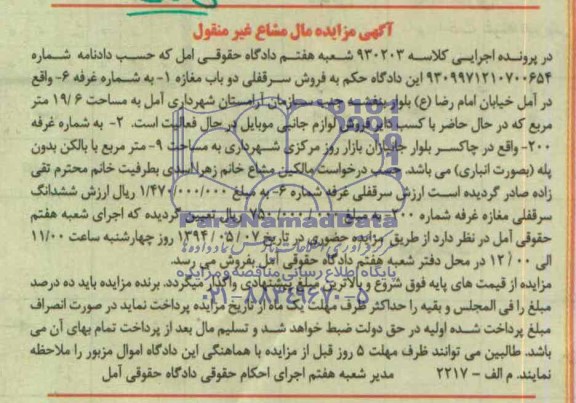 آگهی مزایده مال مشاع غیر منقول
در پرونده اجرایی کلاسه ۹۳۰۲۰۳ شعبه هفتم دادگاه حقوقی امل که حسب دادنامه شماره
۹۳۰۹۹۷۱۲۱۰۷۰۰۶۵۴ این دادگاه حکم به فروش سرقفلی دو باب مغازه ۱- به شماره غرفه ۶- واقع
در آمل خیابان امام رضا (ع) بلوار بنفشه جنب سازمان آراستان شهرداری آمل به مساحت ۱۹/۶ متر
مربع که در حال حاضر با کسب دایر فروش لوازم جانبی موبایل در حال فعالیت است. ۲- به شماره غرفه
۲۰۰- واقع در چاکسر بلوار جانبازان بازار روز مرکزی شهرداری به مساحت ۹- متر مربع با بالکن بدون
پله (بصورت انباری) می باشد. حسب درخواست مالکین مشاع خانم زهرا اسدی بطرفیت خانم محترم تقی
زاده صادر گردیده است ارزش سرقفلی غرفه شماره ۶- به مبلغ ۱/۴۷۰/۰۰۰/۰۰۰ ریال ارزش ششدانگ
سرقفلی مغازه غرفه شماره ۲۰۰- به مبلغ ۷۵۰/۰۰۰/۰۰۰ ریال تعیین گردیده که اجرای شعبه هفتم
حقوقی آمل در نظر دارد از طریق مزایده حضوری در تاریخ ۱۳۹۴/۰۵/۰۷ روز چهارشنبه ساعت ۱۱/۰۰
الی ۱۲/۰۰ در محل دفتر شعبه هفتم دادگاه حقوقی آمل بفروش می رسد.
مزایده از قیمت های پایه فوق شروع و بالاترین مبلغ پیشنهادی واگذار میگردد. برنده مزایده باید ده درصد
مبلغ را فی المجلس و بقیه را حداکثر ظرف مهلت یک ماه از تاریخ مزایده پرداخت نماید در صورت انصراف
مبلغ پرداخت شده اولیه در حق دولت ضبط خواهد شد و تسلیم مال بعد از پرداخت تمام بهای آن می
باشد. طالبین می توانند ظرف مهلت ۵ روز قبل از مزایده با هماهنگی این دادگاه اموال مزبور را ملاحظه
نمایند. م الف - ۲۲۱۷ مدیر شعبه هفتم اجرای احکام حقوقی دادگاه حقوقی آمل
ParsNamadData
پایگاه اطلاع رسانی مناقصه و مزایده
۰۲۱-۸۸۳۴۹۶۷۰-۵